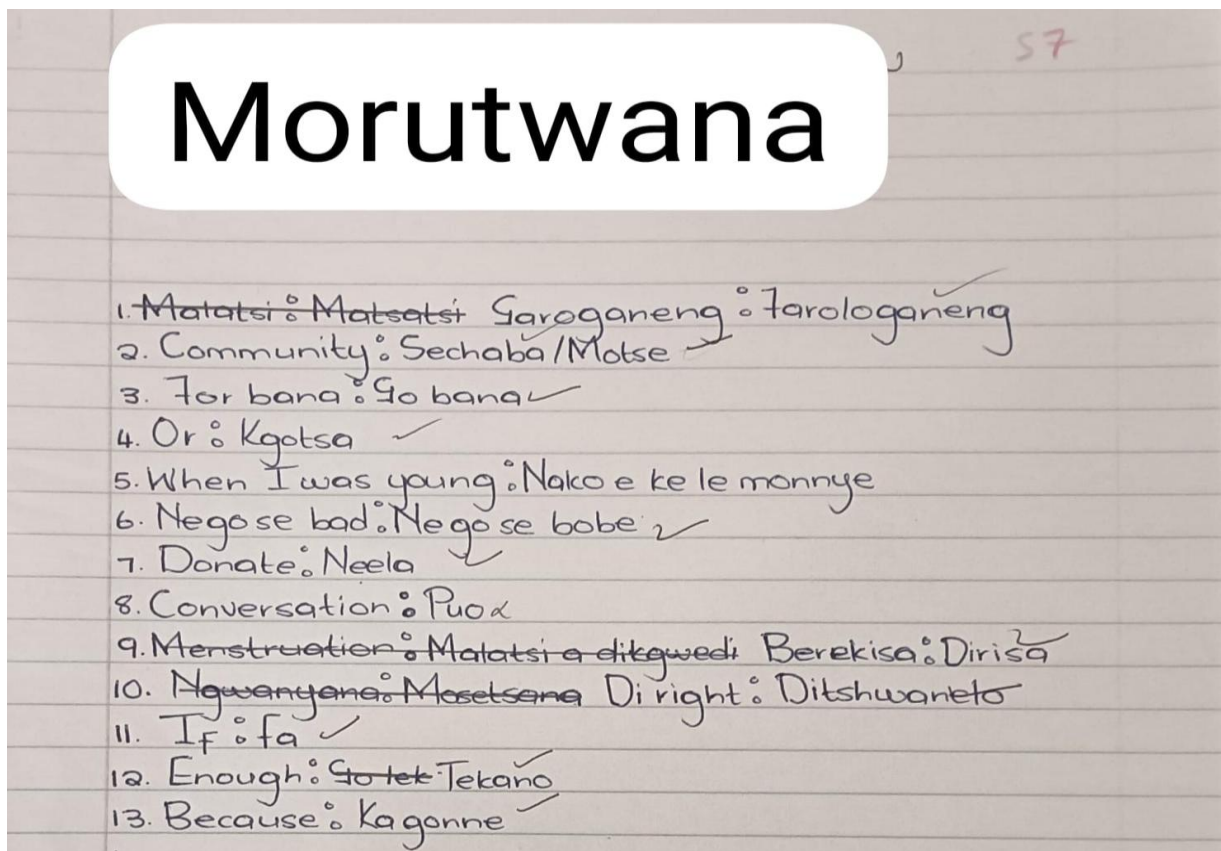 Morutwana
S7
1. Matatsi: Matsatsi Garoganeng: Farologaneng
2. Community: Sechaba/Motse
3. For bana: Go bana
4. Or: Kgotsa
5. When I was young: Nako e ke le monnye
6. Nego se bad: Nego se bobe
7. Donate: Neela
8. Conversation: Puo
9. Menstruation: Malatsi a dikgwedi Berekisa: Dirisa
10. Ngwanyana: Mosetsana Di right: Ditshwaneto
11. If: fa
12. Enough: Go tek Tekano
13. Because: Ka gonne